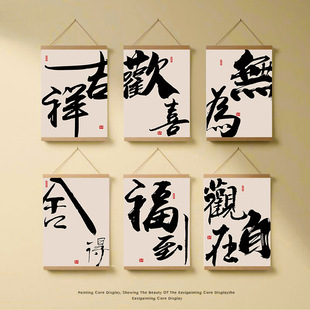 吉祥
歡喜
無為
舍得
福到
觀自在
Painting Core Display, Showing The Beauty Of The Eastpainting Core Displaythe
Eastpainting Core Display